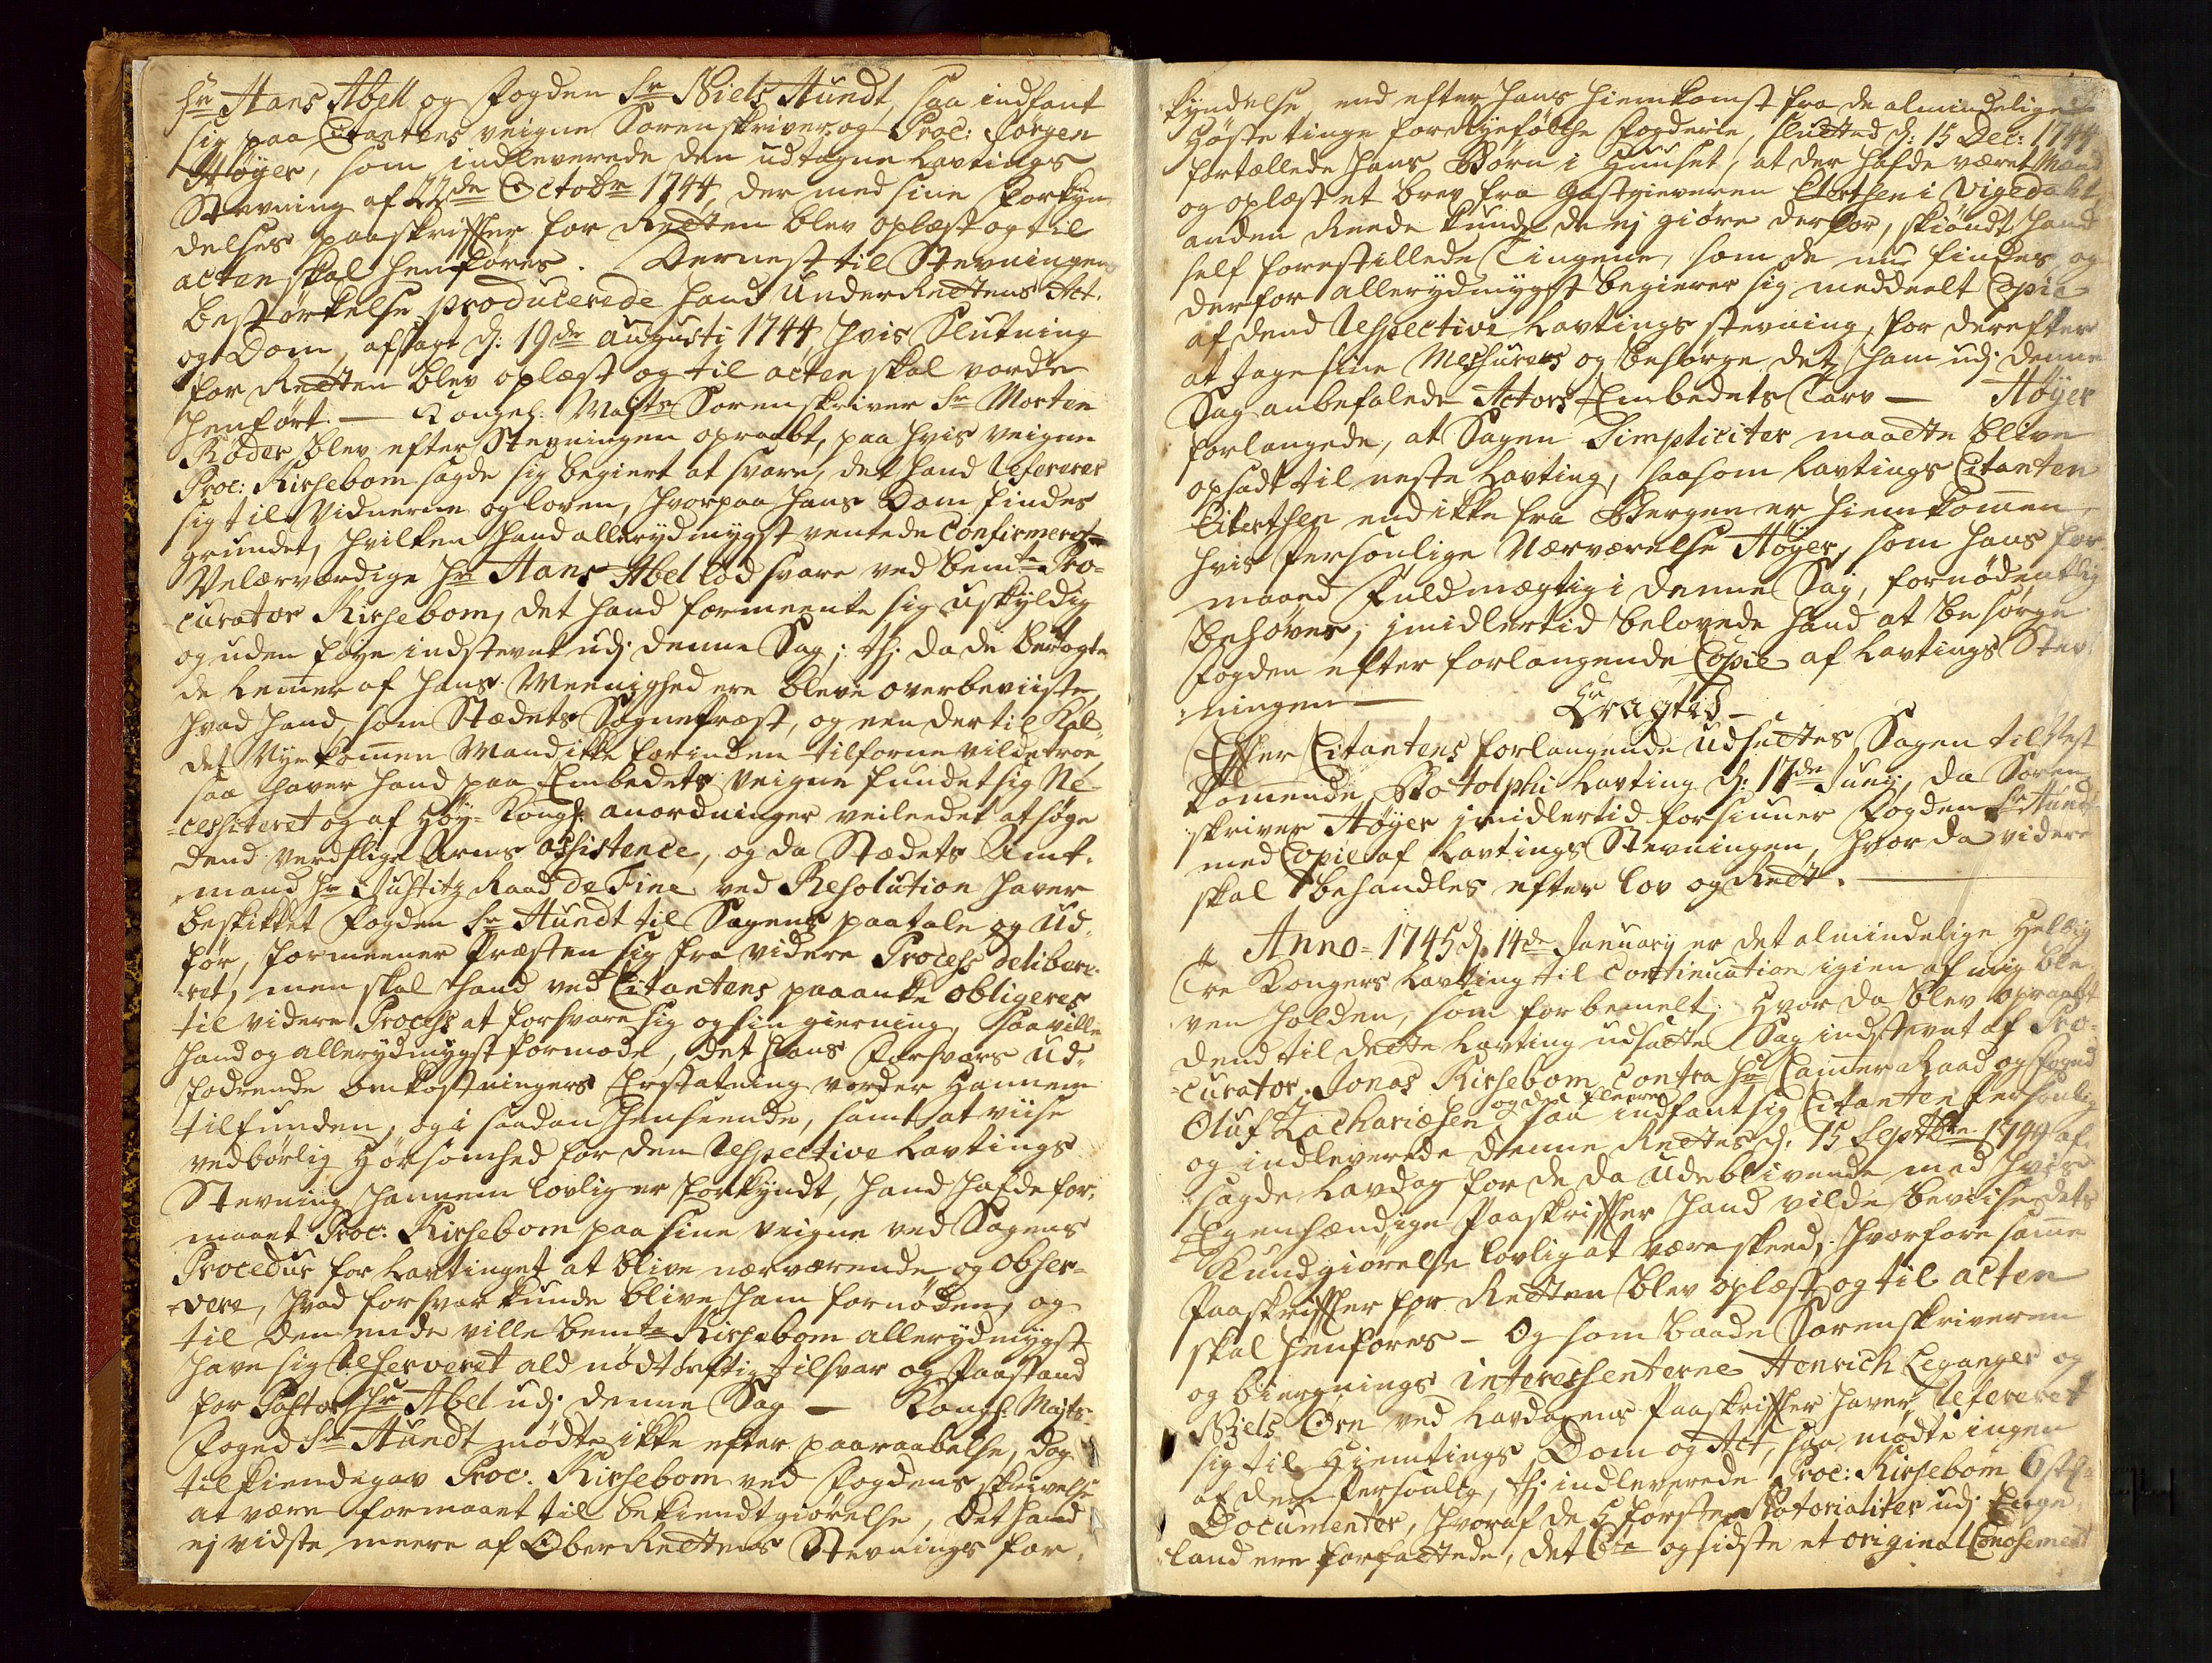 Hr Hans Abell og Fogden Sr Niels Aundt, saa indfant
sig paa Citantens veigne Sorenskriver og Proc: Jørgen
Høyer, som indleverede den udtagne Lavtings
Stevning af 22de Octobr 1744, der med sine Forkyn-
delses paaskrifter for Retten blev oplæst og til
acten skal henføres. Dernest til Stevningens
bestørkelse producerede hand UnderRettens Act.
og Dom, afsagt d: 19de Augusti 1744, hvis Slutning
for Retten blev oplæst og til acten skal vorde
henført. — Kongel: Majts Sorenskriver Sr Morten
Røder blev efter Stevningen opraabt, paa hvis veigne
Proc: Kirsebom sagde sig begiert at svare, det hand refererer
sig til Vidnerne og loven, hvorpaa hans Dom findes
grundet, hvilken hand allerydmygst ventede Confirmeret —
Velærværdige Hr Hans Abel lod svare ved bemte Pro-
curator Kirsebom, det hand formeente sig uskyldig
og uden føye indstevnt udj denne Sag; thj da de berøgte-
de Lemer af hans Meenighed ere bleve overbeviiste,
hvad hand som Stædets Sognepræst, og een dertil Kal-
det Nyekommen Mand ikke forinden tilforne vilde troe,
saa haver hand paa Embedets veigne fundet sig Ne-
cessiteret og af Høy-Kongl: anordninger veileedet at søge
dend verdslige Arms assistence, og da Stædets Amt-
mand Hr Justitz Raad de Fine ved Resolution haver
beskikket Fogden Sr Aundt til Sagens paatale og Ud-
før, formeener Præsten sig fra videre Process delibere-
ret, men skal hand ved Citantens paaanke obligeres
til videre Process at forsvare sig og sin gierning, saa ville
hand og allerydmygst formode, det hans Forsvars Ud-
fodrende omkostningers Erstatning vorder Hannem
tilfunden, og i saadan henseende, samt at viise
vedbørlig Hørsomhed for den respective Lavtings
Stevning hannem lovlig er forkyndt, hand hafde for-
maaet Proc: Kirsebom paa sine veigne ved Sagens
Procedur for Lavtinget at blive nærværende og obser-
vere, hvad forsvar kunde blive ham fornøden, og
til den ende ville bemte Kirsebom allerydmygst
have sig reserveret ald nødtørftig tilsvar og Paastand
for Pastor Hr Abel udj denne Sag — Kongl: Majts
Foged Sr Aundt mødte ikke efter paaraabelse, dog
tilkiendegav Proc: Kirsebom ved Fogdens skrivelse
at være formaaet til bekiendtgiørelse, Det hand
ej vidste meere af OberRettens Stevnings for-
kyndelse, end efter hans hiemkomst fra de almindelige
Høste tinge for Ryefølke Fogderie, sluttet d: 15 Dec: 1744
fortællede hans Børn i Huuset, at der hafde været Mænd
og oplæst et brev fra Gæstgieveren Eitertsen i Vigedahl,
anden Reede kunde de ej giøre derfor, skiøndt hand
self forestillede Tingene, som de nu findes og
derfor allerydmygst begierer sig meddeelt Copie
af dend respective Lavtings stevning, for derefter
at tage sine Mesures og besørge det ham udj denne
Sag anbefalede Actors Embedets Tarv — Høyer
forlangede, at Sagen Simpliciter maatte blive
opsadt til neste Lavting, saasom Lavtings Citanten
Eitertsen end ikke fra Bergen er hiemkommen,
hvis Personlige Nærværelse Høyer, som hans for-
maaed Fuldmægtig i denne Sag, fornødentlig
behøver, jmidlertid belovede hand at besørge
Fogden efter forlangende Copie af Lavtings Stev-
ningen —
Eragted —
Efter Citantens forlangende Udsættes Sagen til Nest-
komende Botolphi Lavting d: 17de Junj, da Soren-
skriver Høyer jmidlertid forsiuner Fogden Sr Aundt
med Copie af Lavtings Stevningen, hvor da videre
skal behandles efter lov og Rett.
Anno 1745 d. 14de January er det almindelige Hellig
Tre Kongers Lavting til Continuation igien af mig ble-
ven holden, som forbemelt. Hvor da blev opraabt
dend til dette Lavting udsatte Sag indstevnt af Pro-
curator Jonas Kirsebom contra Hr Camer Raad og Foged
Oluf Zachariæsen og de fleere, saa indfant sig Citanten Personlig
og indleverede denne Rettes d: 15 Septbr 1744 af-
sagde Lavdag for de da Udeblivende med hvis
Egenhændige Paaskrifter hand vilde beviise dets
Kundgiørelse lovlig at være skeed, hvorfore samme
Paaskrifter for Retten blev oplæst og til acten
skal henføres — Og som baade Sorenskriveren
og biergnings interessenterne Henrich Leganger og
Niels Ørn ved Lavdagens Paaskrifter haver refereret
sig til Hiemtings Dom og Act, saa mødte ingen
af dem Personlig, thj indleverede Proc: Kirsebom 6 st:
Documenter, hvoraf de 5 første Notorialiter udj Enge-
land ere forfattede, det 6te og sidste et original Conosement